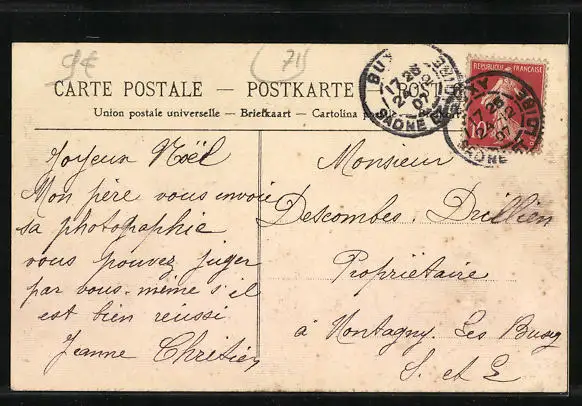 9€
71
CARTE POSTALE — POSTKARTE — POST
Union postale universelle — Briefkaart — Cartolina
REPUBLIQUE FRANÇAISE
10
BUXY
17 26
2 12
07
SAONE
Joyeux Noël
Mon père vous envoie
sa photographie
vous pouvez juger
par vous-même s'il
est bien réussi
Jeanne Chretien
Monsieur
Descombes. Drillien
Propriétaire
à Montagny Les Buxy
S. et L